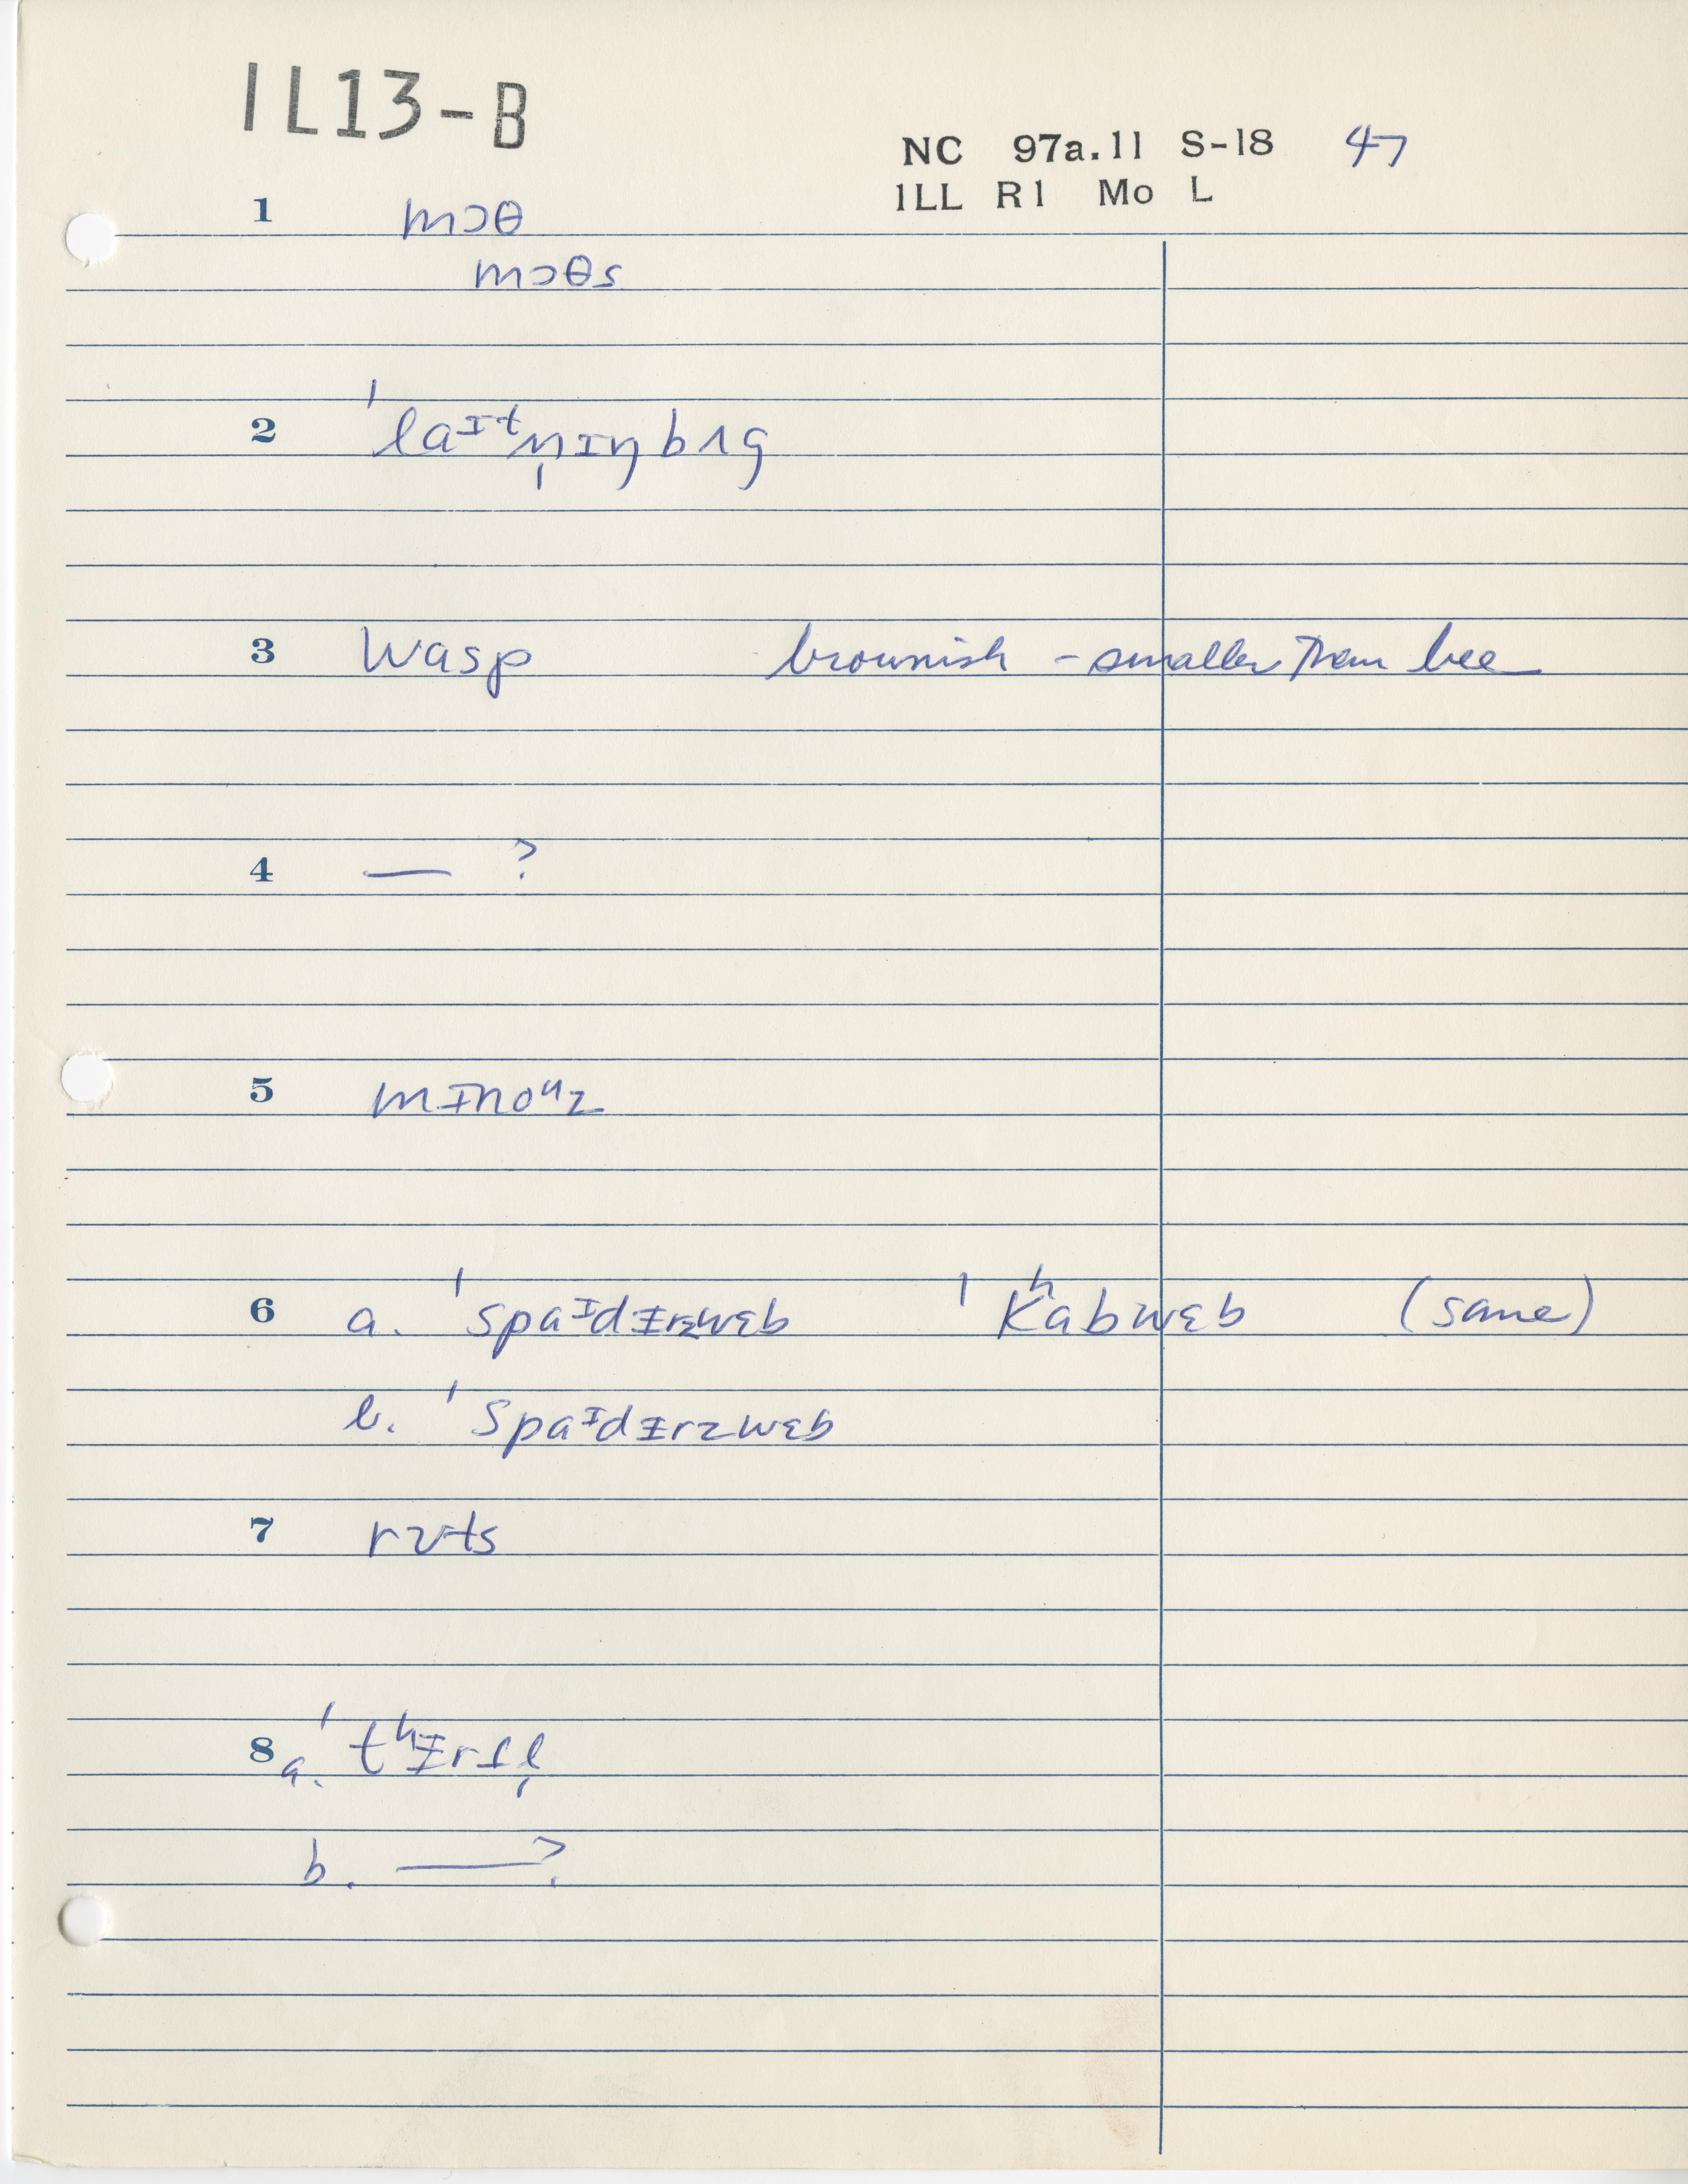 IL13-B
NC 97a.11 S-18 47
ILL R1 Mo L
1 mɔθ
mɔθs
2 ˈlaᴵᵗn̩ɪŋbʌg
3 wasp brownish - smaller than bee
4 — ?
5 mɪnoᵘz
6 a. ˈspaᴵdᵻrzwɛb ˈkʰabwɛb (same)
b. ˈspaᴵdᵻrzwɛb
7 rʊts
8 a. ˈtʰᵻrtl̩
b. — ?